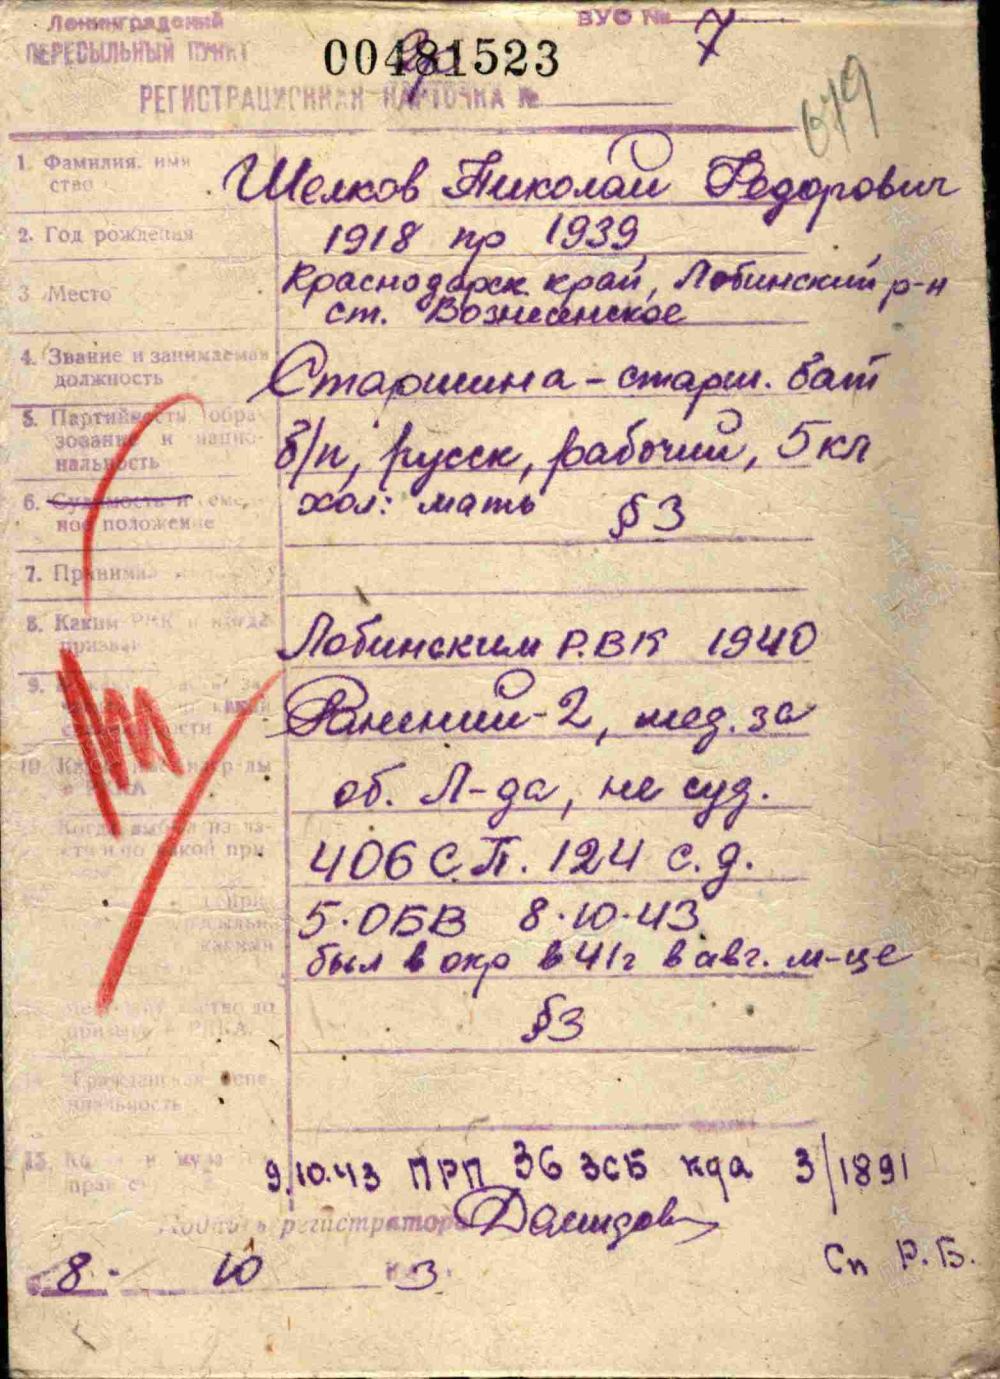 Ленинградский
ВУС № 7
ПЕРЕСЫЛЬНЫЙ ПУНКТ
00481523
РЕГИСТРАЦИОННАЯ КАРТОЧКА №
679
1. Фамилия, имя
ство
Шелков Николай Федорович
2. Год рождения
1918 пр 1939
3 Место
Краснодарск край, Лабинский р-н
ст. Вознесенское
4. Звание и занимаемая
должность
Старшина - старш. бат
5. Партийность обра-
зование и нацио-
нальность
б/п, русск, рабочий, 5 кл
6. Судимость и семе-
ное положение
хол: мать §3
7. Принима
8. Каким РВК и когда
призван
Лабинским Р.В.К 1940
9.
сти
Ранений-2, мед. за
10.
об. Л-да, не суд.
Когда выбыл из ча-
сти и по какой при
406 С.П. 124 с.д.
5.ОБВ 8.10.43
был в окр в 41г в авг. м-це
§3
Гражданская спе-
циальность
15.
9.10.43 ПРП 36 ЗСБ кда 3/1891
регистратора
8. 10 3
Сп Р.Б.